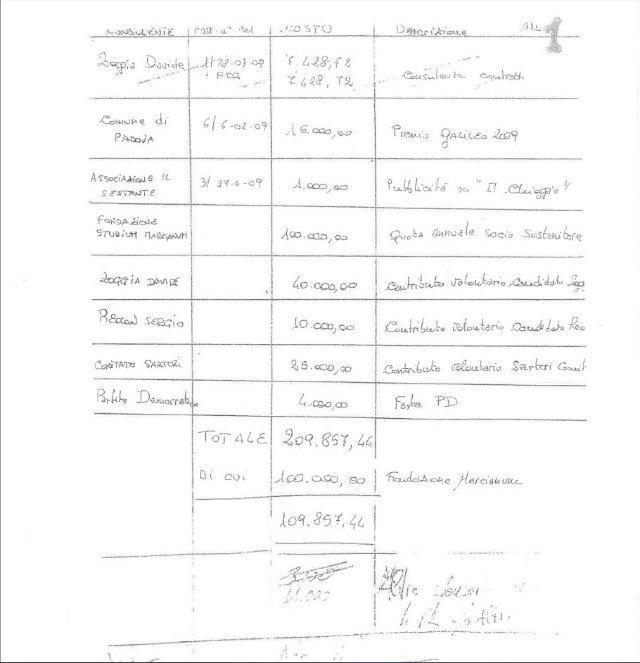 CONSULENTE COSTO Descrizione
1
Zoggia Davide 1/28-07-09 7.428,72
7.428,72 Consulenza contratt
Comune di PADOVA 5/5-02-09 15.000,00 Premio GALILEO 2009
ASSOCIAZIONE IL SESTANTE 3/27-4-09 1.000,00 Pubblicità su "Il Chioggia"
FONDAZIONE STUDIUM MARCIANUM 100.000,00 Quota annuale socio Sostenitore
ZOGGIA DAVIDE 40.000,00 Contributo volontario Candidato Zog
REOLON SERGIO 10.000,00 Contributo volontario Candidato Reo
COMITATO SARTORI 25.000,00 Contributo volontario Sartori Comit
Partito Democratico 4.000,00 Festa PD
TOTALE 209.857,44
Di cui 100.000,00 Fondazione Marcianum
109.857,44